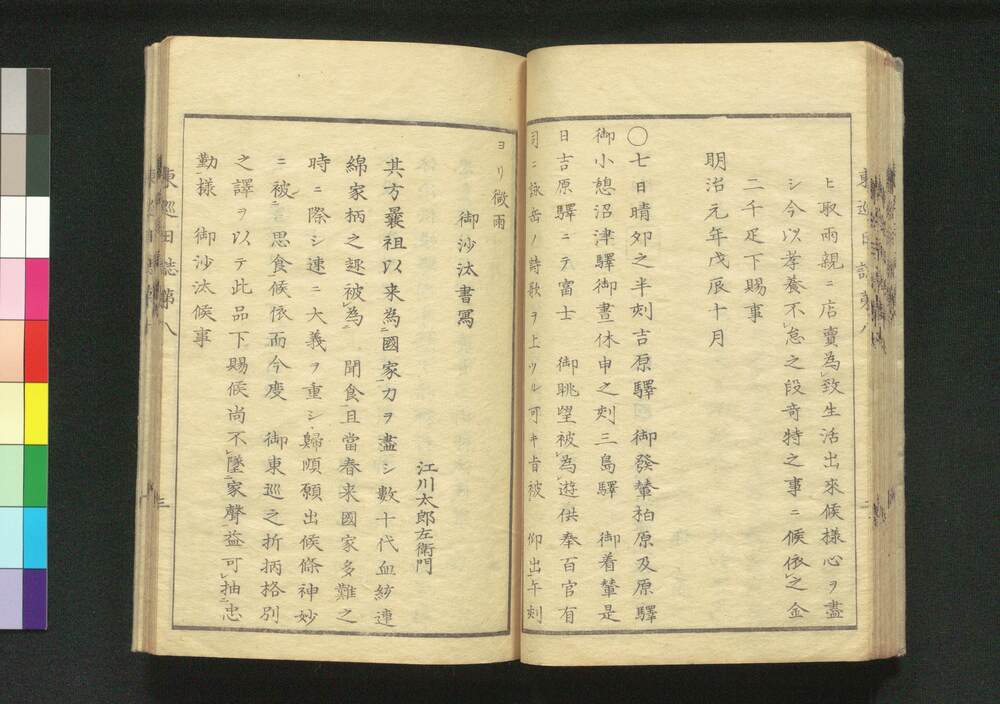 ヒ取雨親ニ店賣為致生活出來候様心ヲ盡
シ今以孝養不怠之段奇特之事ニ候依之金
二千疋下賜事
明治元年戊辰十月
〇七日晴卯之半刻吉原驛　御發輦柏原及原驛
御小憩沼津驛御晝休申之刻三島驛　御着輦是
日吉原驛ニテ富士　御眺望被為遊供奉百官有
司ニ詠岳ノ詩歌ヲ上ツル可キ旨被　仰出午刻
ヨリ微雨
御沙汰書寫
江川太郎左衛門
其方曩祖以来為國家力ヲ盡シ數十代血紡連
綿家柄之趣被為　聞食且當春来國家多難之
時ニ際シ速ニ大義ヲ重シ歸順願出候條神妙
ニ被　思食候依而今度　御東巡之折柄格別
之譯ヲ以テ此品下賜候尚不墜家聲益可抽忠
勤様　御沙汰候事
東巡日誌第八
三